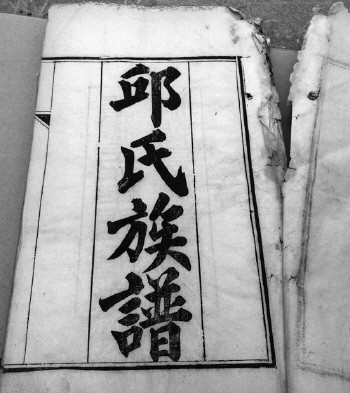 邱氏族譜